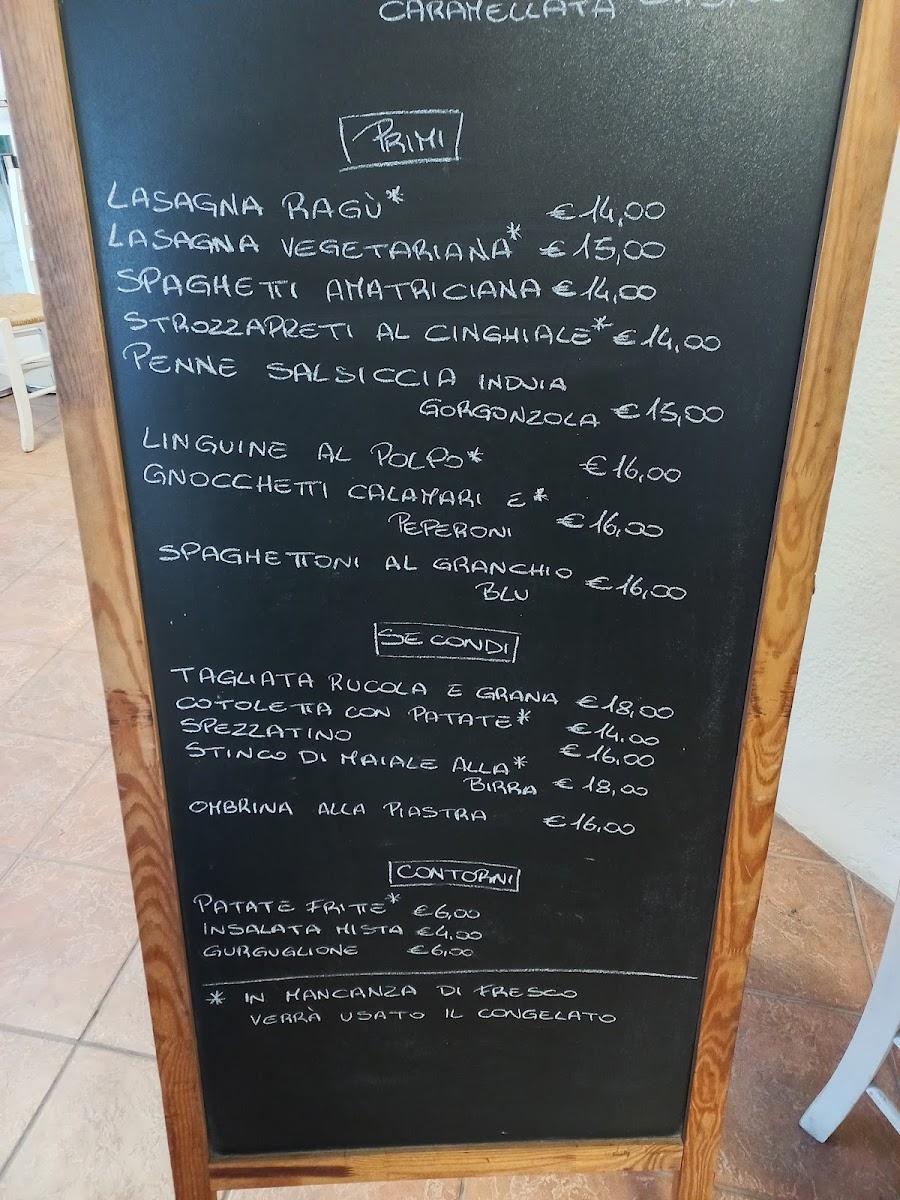 CARAMELLATA
PRIMI
LASAGNA RAGÙ* €14,00
LASAGNA VEGETARIANA* €15,00
SPAGHETTI AMATRICIANA €14,00
STROZZAPRETI AL CINGHIALE* €14,00
PENNE SALSICCIA INDUIA
GORGONZOLA €15,00
LINGUINE AL POLPO* €16,00
GNOCCHETTI CALAMARI E*
PEPERONI €16,00
SPAGHETTONI AL GRANCHIO
BLU €16,00
SECONDI
TAGLIATA RUCOLA E GRANA €18,00
COTOLETTA CON PATATE* €14.00
SPEZZATINO €16,00
STINCO DI MAIALE ALLA*
BIRRA €18,00
OMBRINA ALLA PIASTRA €16,00
CONTORNI
PATATE FRITTE* €6,00
INSALATA MISTA €4,00
GURGUGLIONE €6,00
* IN MANCANZA DI FRESCO
VERRÀ USATO IL CONGELATO